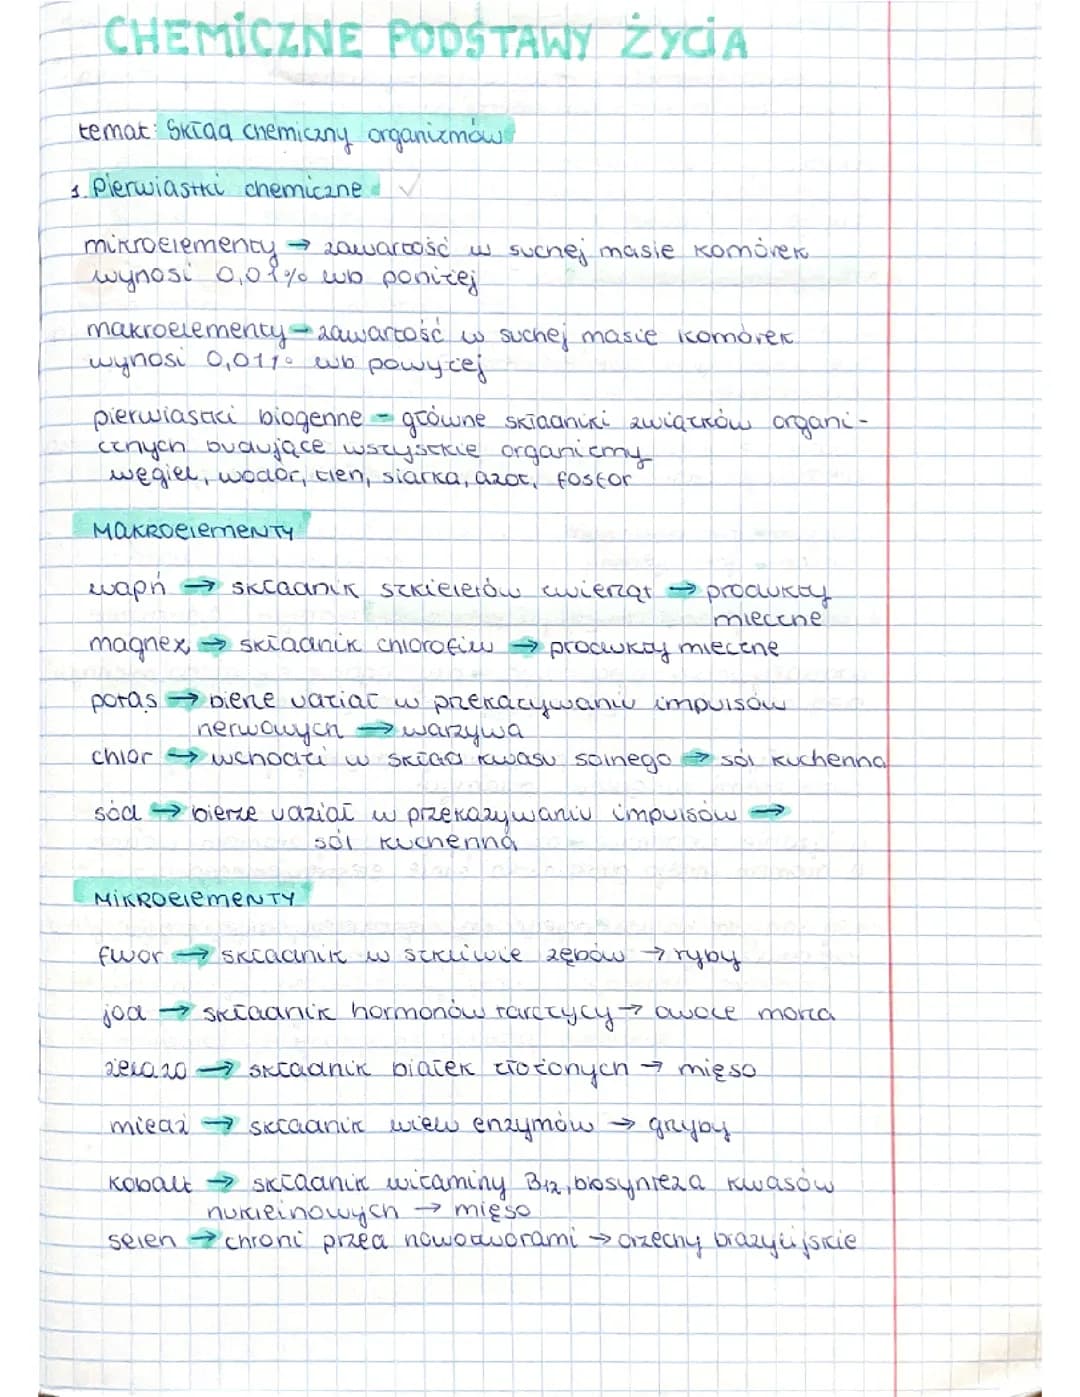 CHEMICZNE PODSTAWY ŻYCIA
temat: Skład chemiczny organizmów
1. Pierwiastki chemiczne ✓
mikroelementy → zawartość w suchej masie komórek
wynosi 0,01% lub poniżej
makroelementy - zawartość w suchej masie komórek
wynosi 0,01% lub powyżej
pierwiastki biogenne - główne składniki związków organi-
cznych budujące wszystkie organizmy
węgiel, wodór, tlen, siarka, azot, fosfor
MAKROELEMENTY
wapń → składnik szkieletów zwierząt → produkty
mleczne
magnez → składnik chlorofilu → produkty mleczne
potas → bierze udział w przekazywaniu impulsów
nerwowych → warzywa
chlor → wchodzi w skład kwasu solnego → sól kuchenna
sód → bierze udział w przekazywaniu impulsów →
sól kuchenna
MIKROELEMENTY
fluor → składnik w szkliwie zębów → ryby
jod → składnik hormonów tarczycy → owoce morza
żelazo → składnik białek złożonych → mięso
miedź → składnik wielu enzymów → grzyby
kobalt → składnik witaminy B12, biosynteza kwasów
nukleinowych → mięso
selen → chroni przed nowotworami → orzechy brazylijskie